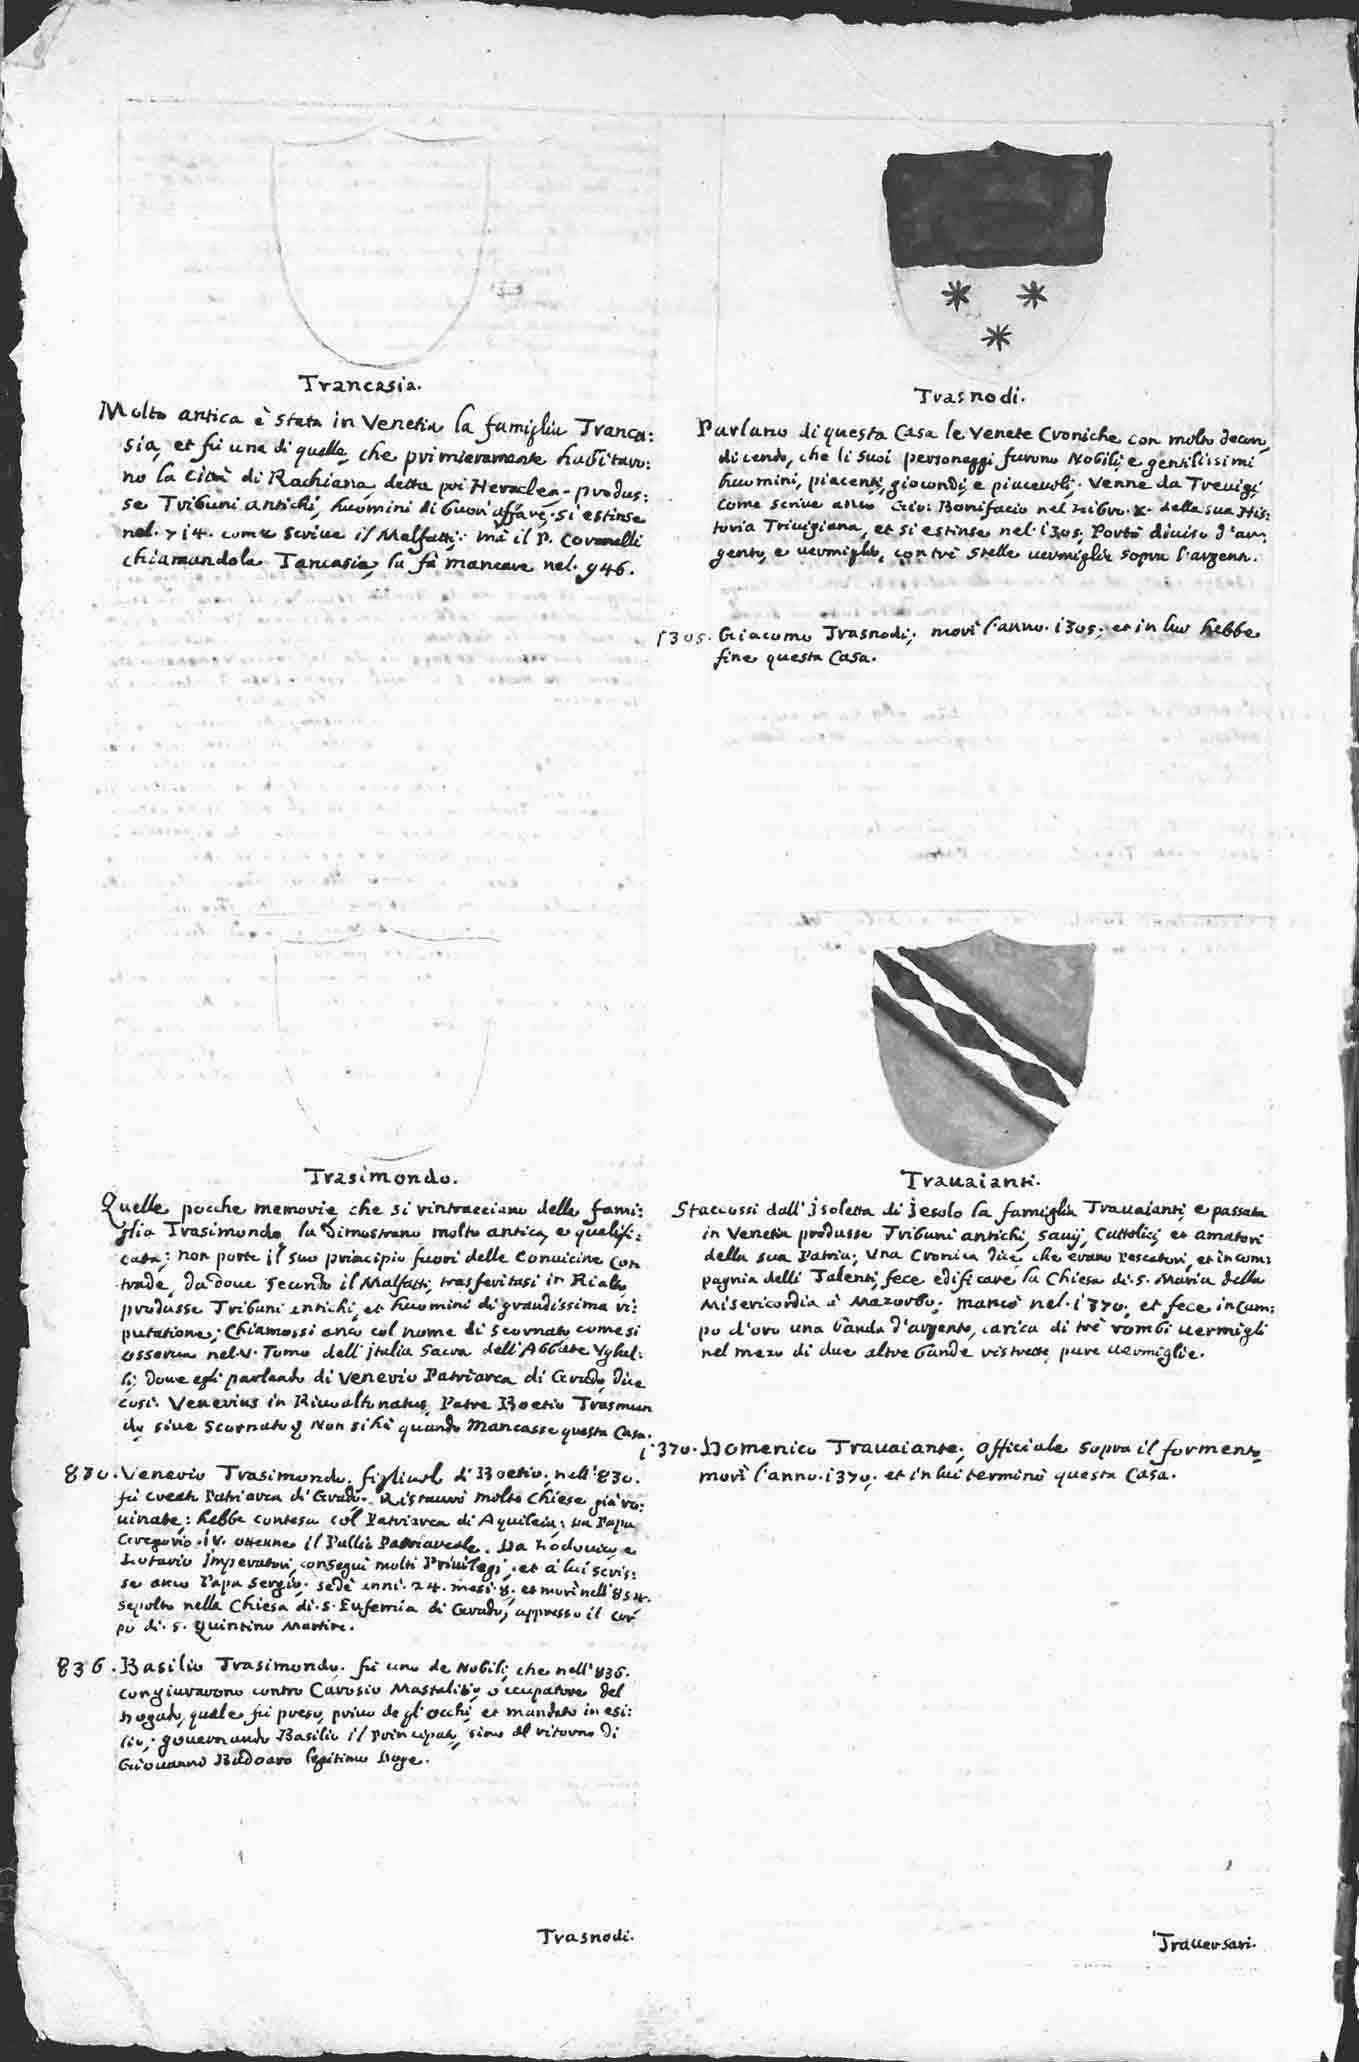 Trancasia.
Molto antica è stata in Venetia la famiglia Tranca:
sia, et fù una di quelle, che primieramente habitaro:
no la Città di Rachiana detta poi Heraclea. produs:
se Tribuni antichi, huomini di buon affare; si estinse
nel. 714. come scriue il Malfatti; mà il P. Coronelli
chiamandola Tancasia, la fà mancare nel. 946.
Trasimondo.
Quelle pocche memorie che si rintracciano della fami:
glia Trasimondo, la dimostrano molto antica, e qualifi:
cata; non porte il suo principio fuori delle Conuicine Con
trade, da doue secondo il Malfatti, trasferitasi in Rialto
produsse Tribuni antichi, et huomini di grandissima ri:
putatione; Chiamossi anco col nome di Scornato, come si
osserua nel. V. Tomo dell'Italia Sacra dell'Abbate Vghel:
li; doue egli parlando di Venerio Patriarca di Grado, dice
cosi: Venerius in Riuoalto natus, Patre Boetio Trasmun
do, siue Scornato; Non si hà quando Mancasse questa Casa.
830. Venerio Trasimondo. figliuol di Boetio; nell'830.
fù creato Patriarca di Grado. Ristaurò molte Chiese già ro:
uinate; hebbe contesa col Patriarca di Aquileia; da Papa
Gregorio. IV. ottenne il Pallio Patriarcale. Da Lodouico, e
Lotario Imperatori, conseguì molti Priuilegi; et à lui scris:
se anco Papa Sergio. sedè anni. 24. mesi. 8. et morì nell'854.
sepolto nella Chiesa di. S. Eufemia di Grado, appresso il cor
po di. S. Quintino Martire.
836. Basilio Trasimondo. fù uno de Nobili, che nell'836.
congiurarono contro Carosio Mastalitio, occupatore del
Dogato, quale fù preso, priuo degl'occhi, et mandato in esi:
lio; gouernando Basilio il Principato, sino al ritorno di
Giouanni Badoaro legitimo Doge.
Trasnodi.
Trasnodi.
Parlano di questa Casa le Venete Croniche con molto decoro,
dicendo, che li suoi personaggi furono Nobili, e gentilissimi
huomini, piacenti, giocondi, e piaceuoli. Venne da Treuigi,
come scriue anco Gio: Bonifacio nel Libro. X. della sua His:
toria Triuigiana, et si estinse nel. 1305; Portò diuiso d'ar:
gento, e uermiglio, con trè stelle uermiglie sopra l'argento.
1305. Giacomo Trasnodi; morì l'anno. 1305; et in lui hebbe
fine questa Casa.
Trauaianti.
Staccossi dall'Isoletta di Jesolo la famiglia Trauaianti, e passata
in Venetia produsse Tribuni antichi, sauij, Cattolici, et amatori
della sua Patria; Vna Cronica dice, che erano Pescatori, et in com:
pagnia delli Talenti, fece edificare la Chiesa di. S. Maria della
Misericordia à Mazorbo. mancò nel. 1370; et fece in Cam:
po d'oro una banda d'argento, carica di trè rombi uermigli
nel mezo di due altre bande ristrette, pure uermiglie.
1370. Domenico Trauaiante; Officiale sopra il formento,
morì l'anno. 1370; et in lui terminò questa Casa.
Trauersari.